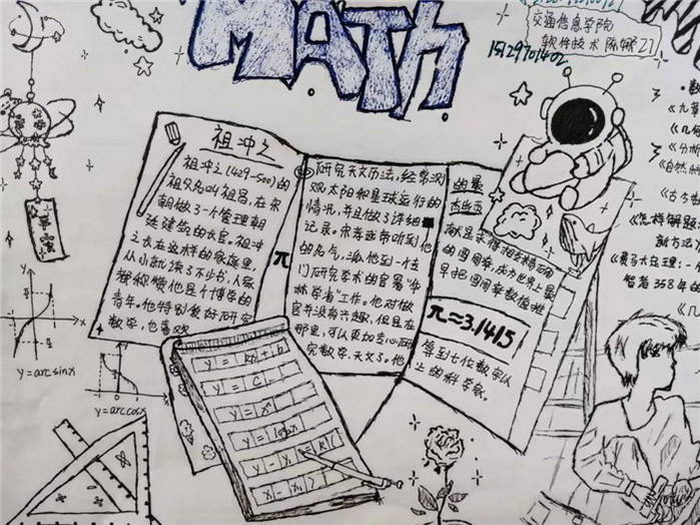 MATH
交通信息学院
软件技术 陈娜27
祖冲之
祖冲之(429-500)的
祖父名叫祖昌,在宋
朝做了一个管理朝
廷建筑的长官。祖冲
之长在这样的家庭里,
从小就读了不少书,人家
都称赞他是个博学的
青年。他特别爱好研究
数学,也喜欢
π
研究天文历法,经常观
观太阳和星球运行的
情况,并且做了详细
记录。宋孝武帝听到他
的名气,派他到一个
门研究学术的官署"华
林学省"工作。他对做
官并没有兴趣,但是在
那里,可以更加专心研
究数学、天文了。他
的最
杰出贡
献是求得相当精确
的圆周率,成为世界上最
早把圆周率数值推
π≈3.1415
算到七位数字以
上的科学家。
y=kx+b
y=c
y=arcsinx
y=arccosx
《九章
《几何
《分析
自然
《古今数
《怎样解题:
新方法
《费马大定理:一
智者358年的